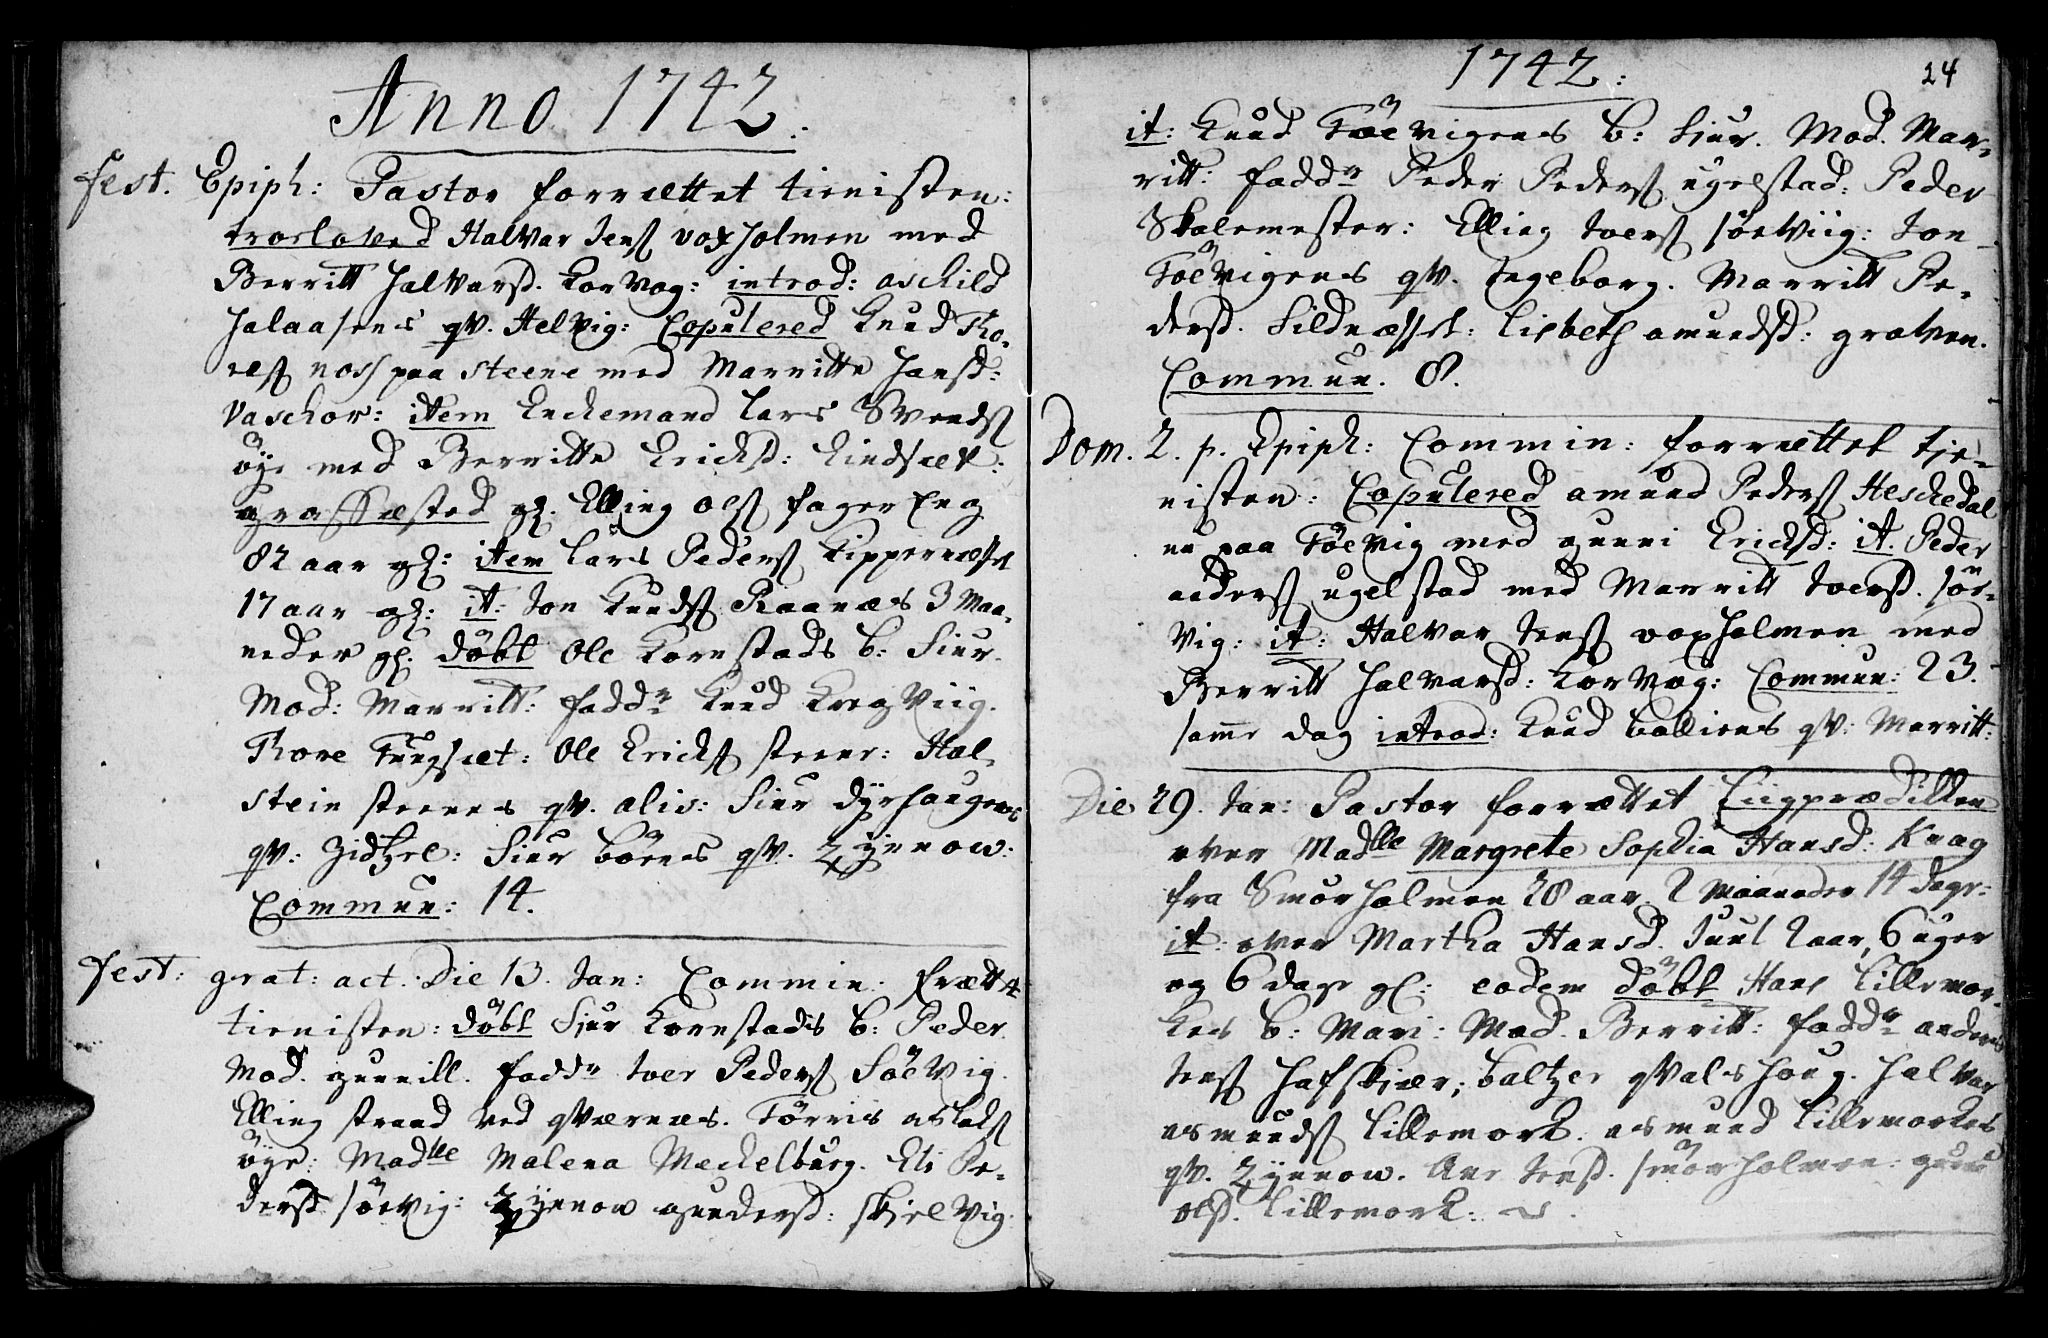 Anno 1742.
Fest. Epiph: Pastor forrættet tienisten:
troelowed Halvar Jens voxholmen med
Berritt Halvarsd. Korvog: introd: aschild
Halaasens qv. Helvig: Copulered Knud Tho-
res noss paa steene med Marritte Hansd:
Vaschor: item Enckemand Lars Svends
öye med Berritte Ericksd: Lindsæt:
græssæsted gl. Elling Ols fagereng
82 aar gl: item Lars Peders Kippernæsset
17 aar gl: it: Jon Knuds Raanæs 3 Maa-
neder gl. döbt Ole Kornstads b: Siur
Mod: Marritt: fadd.r Knud Kregviig.
Thore Tungsæt: Ole Ericks steene: Hal-
stein steenes qv. alis: Siur dyrhaugens
qv: Zidtzel: Siur börnes qv. Zynnow:
Commun: 14.
Fest: grat: act. Die 13. Jan: Commin. frætt.
tienisten: döbt Sjur Kornstads b: Peder.
Mod. gunnill. fadd.r Iver Peders Söevig.
Elling strand ved qværnæs. Törris aslaks
öye: Mad.lle Malena Meckelburg. Eli Pe-
dersd. söevig: Zynnow gundersd: skjelvig.
1742:
24
it: Knud Töevigens b: Sjur. Mod. Mar-
ritt: fadd.r Peder Peders ugelstad: Peder
Skolemester: Elling Ivers söeviig: Jon
Töevigens qv. Ingeborg. Marritt Pe-
dersd. Sildnæsset: Lisbeth amundsd: groven.
Commun. 8.
Dom. 2. p. Epiph: Commin: forrættet tje-
nisten: Copulered amund Peders Heschedal
nu paa Töevig med gunni Ericksd: it. Peder
anders ugelstad med Marritt Iversd. söe-
vig: it: Halvar Jens voxholmen med
Berritt Halvarsd: Korvog: Commun: 23.
samme dag introd: Knud Bolliens qv: Marritt:
Die 29. Jan: Pastor forrættet Liigprædicken
over Mad.lle Margrete Sophia Hansd: Knag
fra Smörholmen 28 aar. 2 Maaneder 14 dage:
it. over Martha Hansd. Juul 2 aar, 6 uger
og 6 dage gl: eodem döbt Hans Lillemor-
kes b: Mari: Mod. Berritt: fadd.r anders
Jens Hafskjær; Baltzer qvalshoug. Halvar
asmunds Lillemork. asmund Lillemorkes
qv. Zynnow. Ane Jensd. smörholmen: guni
Olsd. Lillemork: